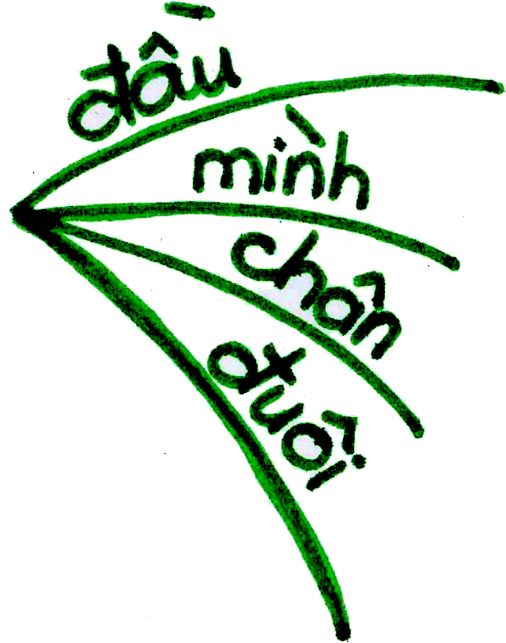 đầu
mình
chân
đuôi